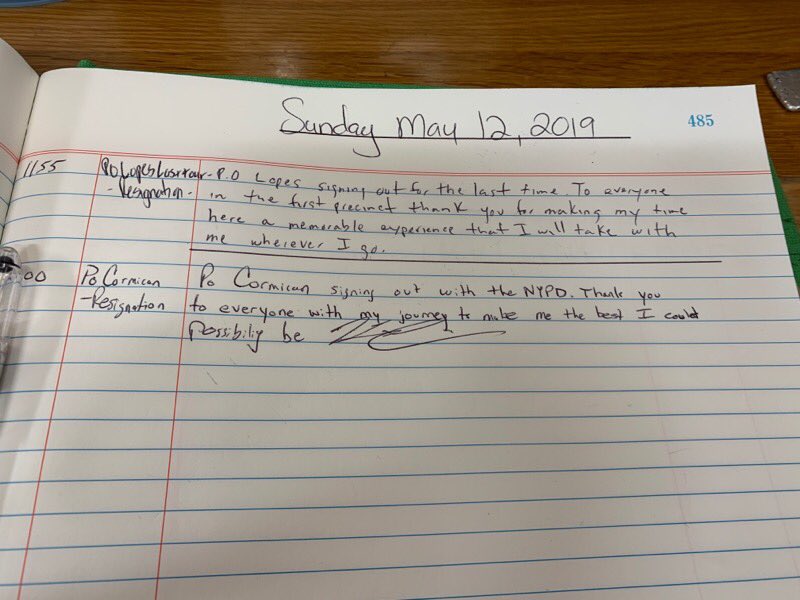 Sunday May 12, 2019
485
1155 PO Lopes - P.O Lopes signing out for the last time. To everyone
- Resignation - in the first precinct thank you for making my time
here a memorable experience that I will take with
me wherever I go.
00 Po Cormican Po Cormican signing out with the NYPD. Thank you
- Resignation to everyone with my journey to make me the best I could
Possibiliy be